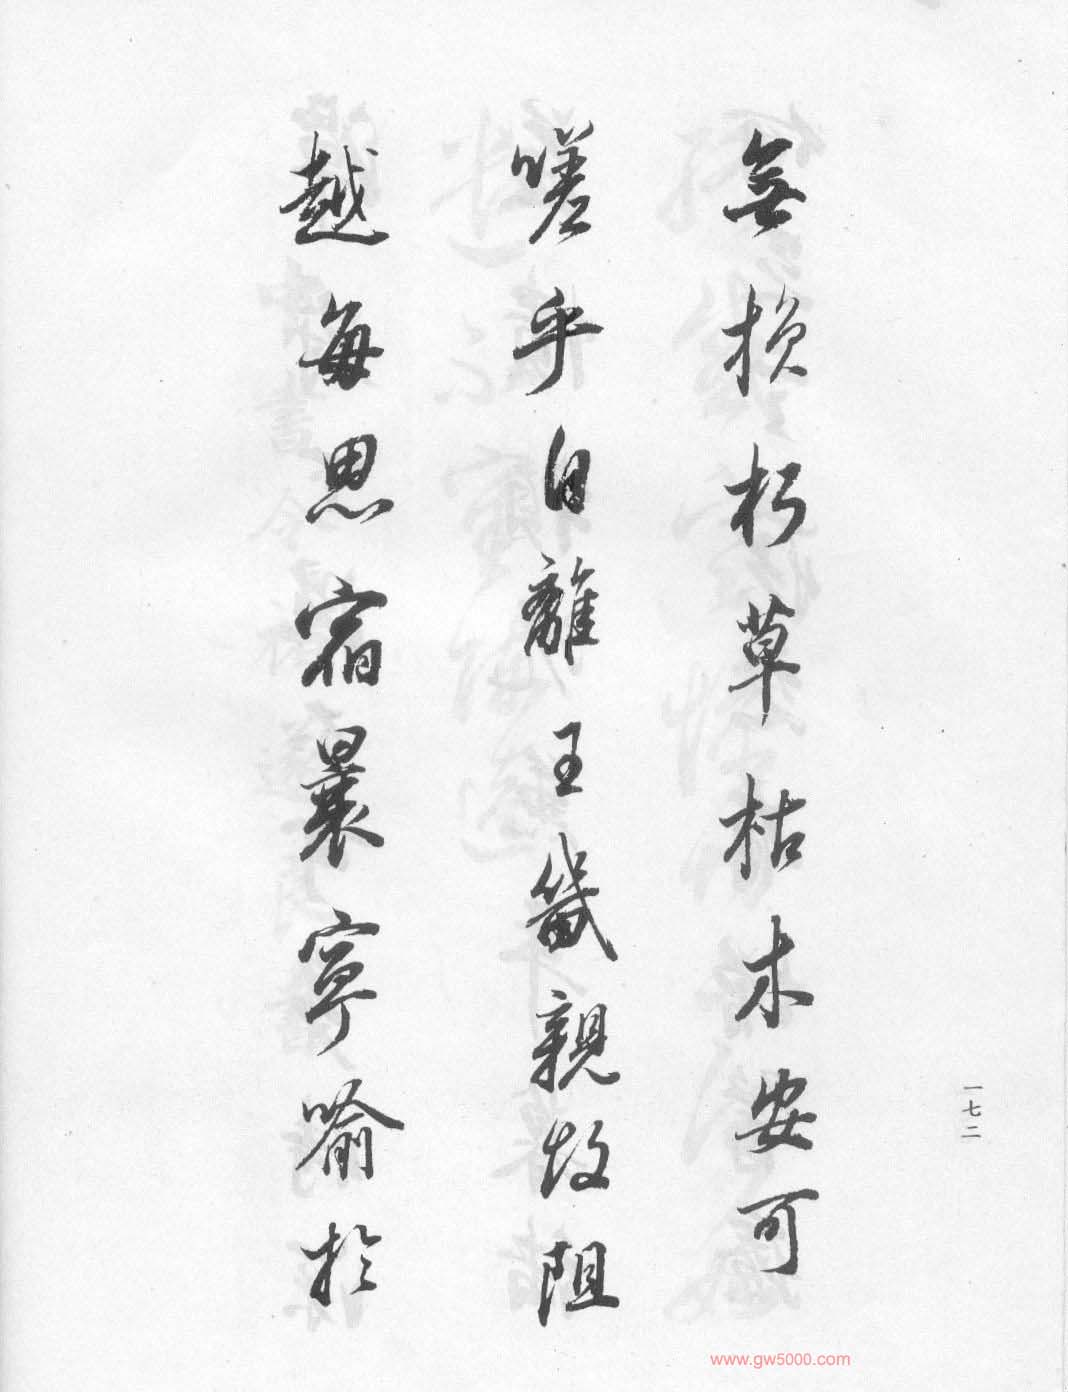 無損朽草枯木安可
嗟乎自離王畿親故阻
越每思宿曩寧喻於
一七二
www.gw5000.com